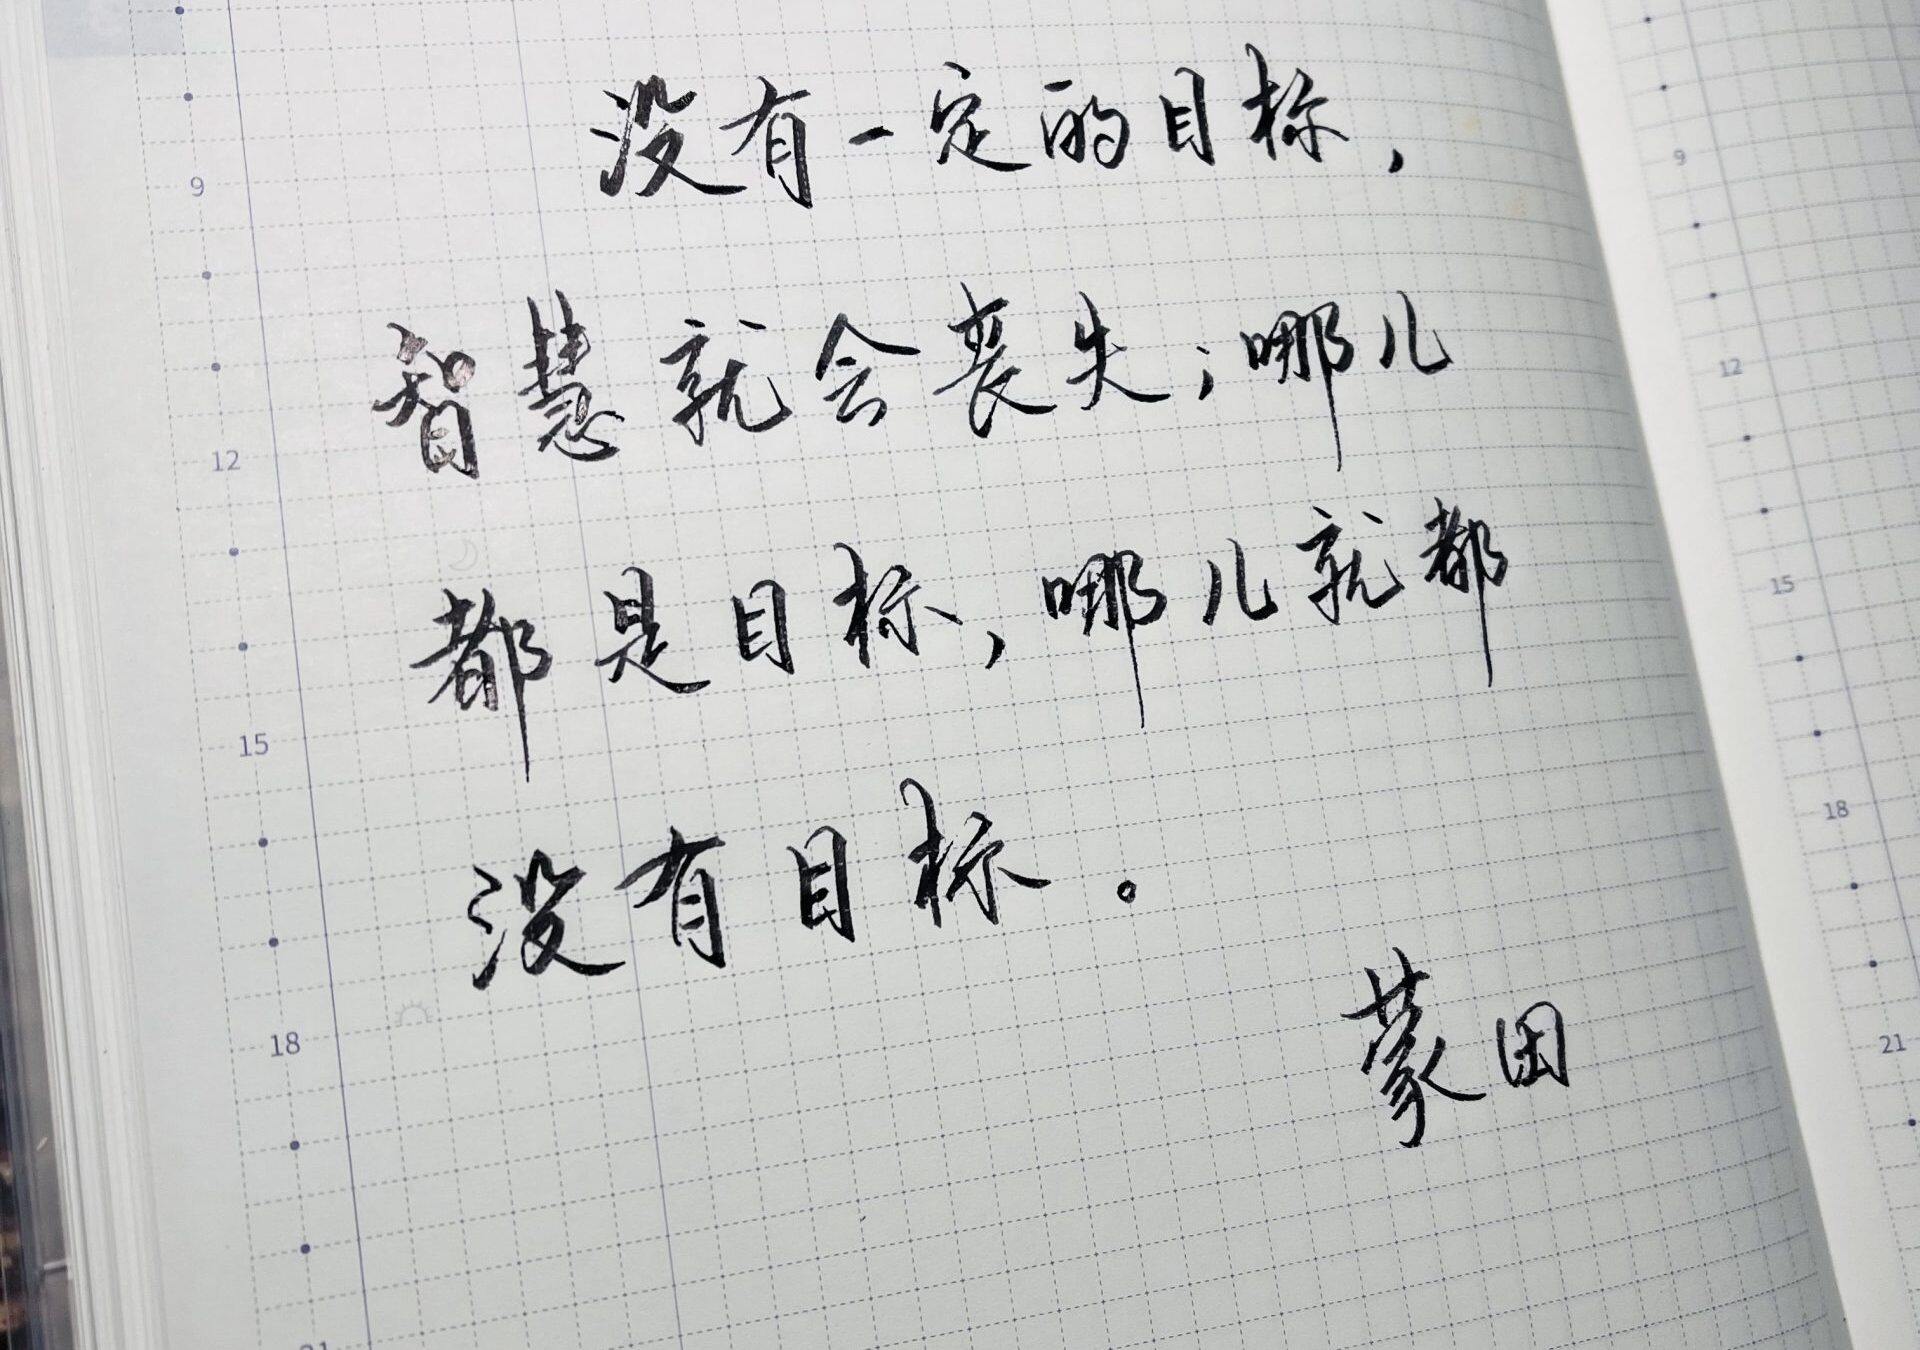 没有一定的目标，
智慧就会丧失；哪儿
都是目标，哪儿就都
没有目标。
蒙田
9
12
15
18
9
12
15
18
21